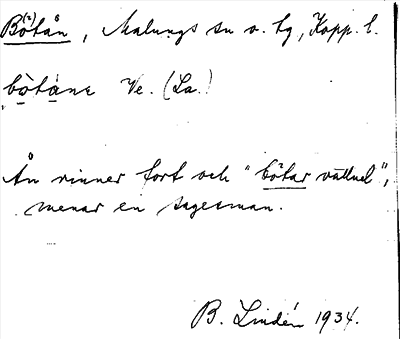 Bo(2)tån, Malungs sn o. tg, Kopp. l.
bò̱tä̱ne Ve. (La.)
Ån rinner fort och "bo²tar vattnet",
menar en sagesman.
B. Lindén 1934.